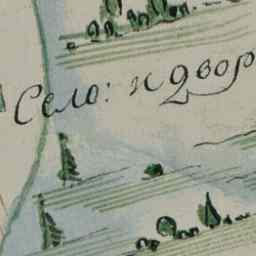 Село: и двор